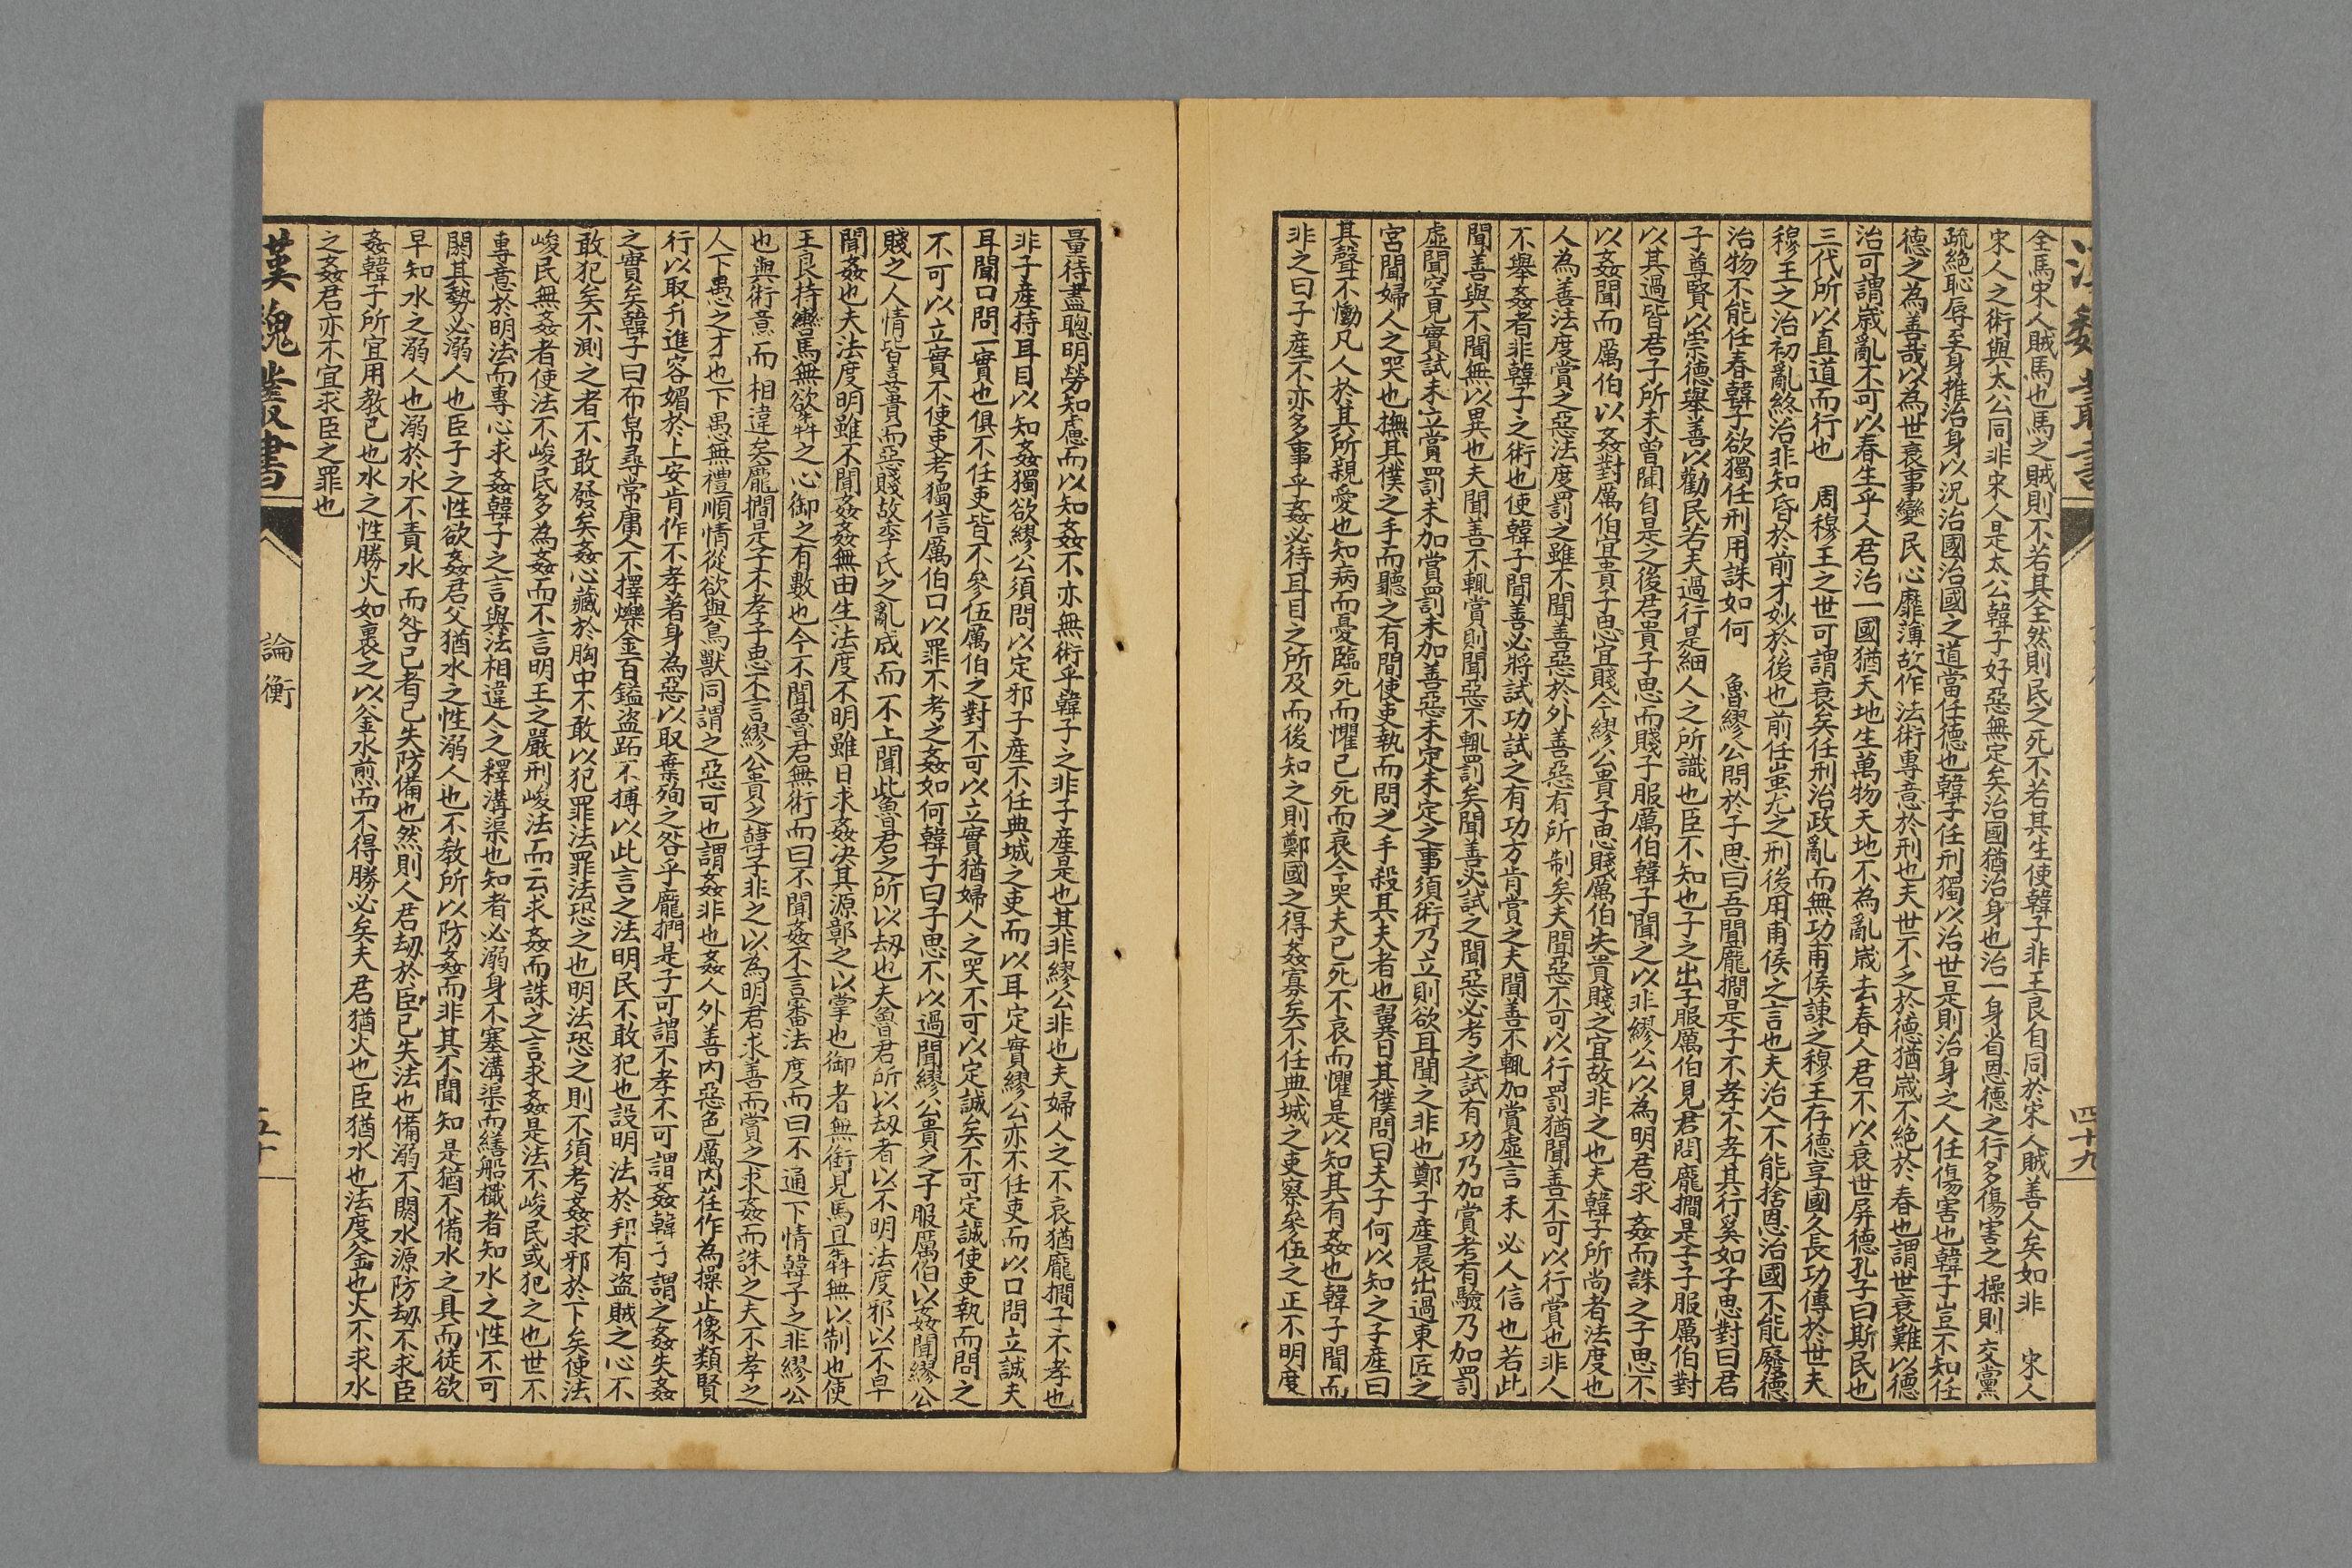 漢魏叢書
四十九
全馬宋人賊馬也馬之賊則不若其全然則民之死不若其生使韓子非王良自同於宋人賊善人矣如非　宋人
宋人之術與太公同非宋人是太公韓子好惡無定矣治國猶治身也治一身省恩德之行多傷害之操則交黨
疏絕恥辱至身推治身以況治國治國之道當任德也韓子任刑獨以治世是則治身之人任傷害也韓子豈不知任
德之為善哉以為世衰事變民心靡薄故作法術專意於刑也夫世不乏於德猶歲不絕於春也謂世衰難以德
治可謂歲亂不可以春生乎人君治一國猶天地生萬物天地不為亂歲去春人君不以衰世屏德孔子曰斯民也
三代所以直道而行也　周穆王之世可謂衰矣任刑治政亂而無功甫侯諫之穆王存德享國久長功傳於世夫
穆王之治初亂終治非知昏於前才妙於後也前任蚩尤之刑後用甫侯之言也夫治人不能捨恩治國不能廢德
治物不能任春韓子欲獨任刑用誅如何　魯繆公問於子思曰吾聞龐擱是子不孝不孝其行奚如子思對曰君
子尊賢以崇德舉善以勸民若夫過行是細人之所識也臣不知也子之出子服厲伯見君問龐擱是子子服厲伯對
以其過皆君子所未曾聞自是之後君貴子思而賤子服厲伯韓子聞之以非繆公以為明君求姦而誅之子思不
以姦聞而厲伯以姦對厲伯宜貴子思宜賤今繆公貴子思賤厲伯失貴賤之宜故非之也夫韓子所尚者法度也
人為善法度賞之惡法度罰之雖不聞善惡於外善惡有所制矣夫聞惡不可以行罰猶聞善不可以行賞也非人
不舉姦者非韓子之術也使韓子聞善必將試功試之有功方肯賞之夫聞善不輒加賞虛言未必人信也若此
聞善與不聞無以異也夫聞善不輒賞則聞惡不輒罰矣聞善必試之聞惡必考之試有功乃加賞考有驗乃加罰
虛聞空見實試未立賞罰未加賞罰未加善惡未定未定之事須術乃立則欲耳聞之非也鄭子產晨出過東匠之
宮聞婦人之哭也撫其僕之手而聽之有間使吏執而問之手殺其夫者也翼日其僕問曰夫子何以知之子產曰
其聲不慟凡人於其所親愛也知病而憂臨死而懼已死而哀今哭夫已死不哀而懼是以知其有姦也韓子聞而
非之曰子產不亦多事乎姦必待耳目之所及而後知之則鄭國之得姦寡矣不任典城之吏察參伍之正不明度
量待盡聰明勞知慮而以知姦不亦無術乎韓子之非子產是也其非繆公非也夫婦人之不哀猶龐擱子不孝也
非子產持耳目以知姦獨欲繆公須問以定邪子產不任典城之吏而以耳定實繆公亦不任吏而以口問立誠夫
耳聞口問一實也俱不任吏皆不參伍厲伯之對不可以立實猶婦人之哭不可以定誠矣不可定誠使吏執而問之
不可以立實不使吏考獨信厲伯口以罪不考之姦如何韓子曰子思不以過聞繆公貴之子服厲伯以姦聞繆公
賤之人情皆喜貴而惡賤故季氏之亂成而不上聞此魯君之所以刼也夫魯君所以刼者以不明法度邪以不早
聞姦也夫法度明雖不聞姦姦無由生法度不明雖日求姦決其源鄣之以掌也御者無銜見馬且犇無以制也使
王良持轡馬無欲犇之心御之有數也今不聞魯君無術而曰不聞姦不言審法度而曰不通下情韓子之非繆公
也與術意而相違矣龐擱是子不孝子思不言繆公貴之韓子非之以為明君求善而賞之求姦而誅之夫不孝之
人下愚之才也下愚無禮順情從欲與鳥獸同謂之惡可也謂姦非也姦人外善內惡色厲內荏作為操止像類賢
行以取升進容媚於上安肯作不孝著身為惡以取棄殉之咎乎龐捫是子可謂不孝不可謂姦韓子謂之姦失姦
之實矣韓子曰布帛尋常庸人不擇爍金百鎰盜跖不搏以此言之法明民不敢犯也設明法於邦有盜賊之心不
敢犯矣不測之者不敢發矣姦心藏於胸中不敢以犯罪法罪法恐之也明法恐之則不須考姦求邪於下矣使法
峻民無姦者使法不峻民多為姦而不言明王之嚴刑峻法而云求姦而誅之言求姦是法不峻民或犯之也世不
專意於明法而專心求姦韓子之言與法相違人之釋溝渠也知者必溺身不塞溝渠而繕船檝者知水之性不可
閼其勢必溺人也臣子之性欲姦君父猶水之性溺人也不教所以防姦而非其不聞知是猶不備水之具而徒欲
早知水之溺人也溺於水不責水而咎己者己失防備也然則人君刼於臣己失法也備溺不閼水源防刼不求臣
姦韓子所宜用教己也水之性勝火如裹之以釜水煎而不得勝必矣夫君猶火也臣猶水也法度釜也火不求水
之姦君亦不宜求臣之罪也
漢魏叢書
論衡
五十